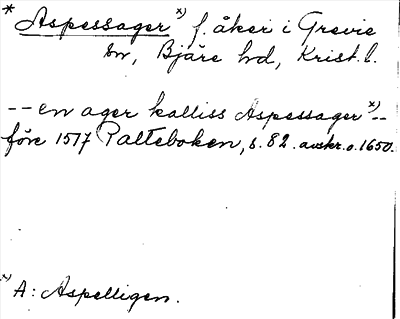 * Aspessager x) f. åker i Grevie
sn, Bjäre hd, Krist. l.
-- en ager kalliss Aspessager x) --
före 1577 Palteboken, s. 82. avskr. o. 1650.
x) A: Aspelligen.